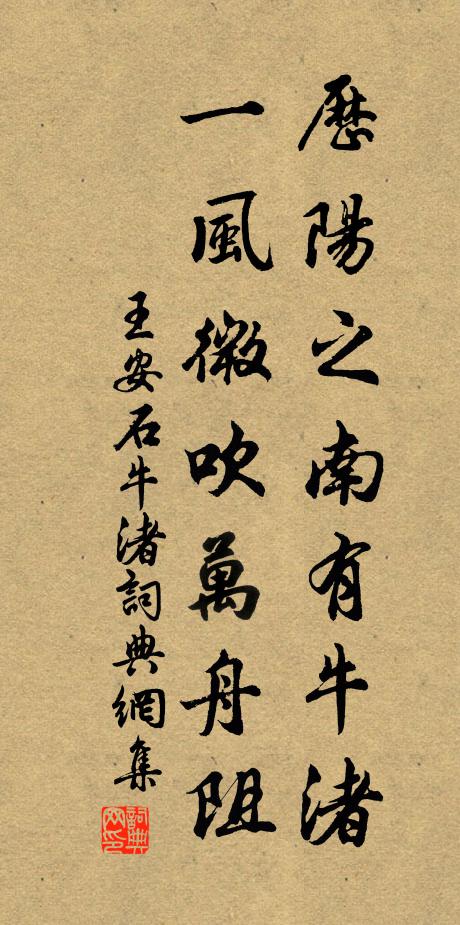 歷陽之南有牛渚
一風微吹萬舟阻
王安石牛渚詞典網集